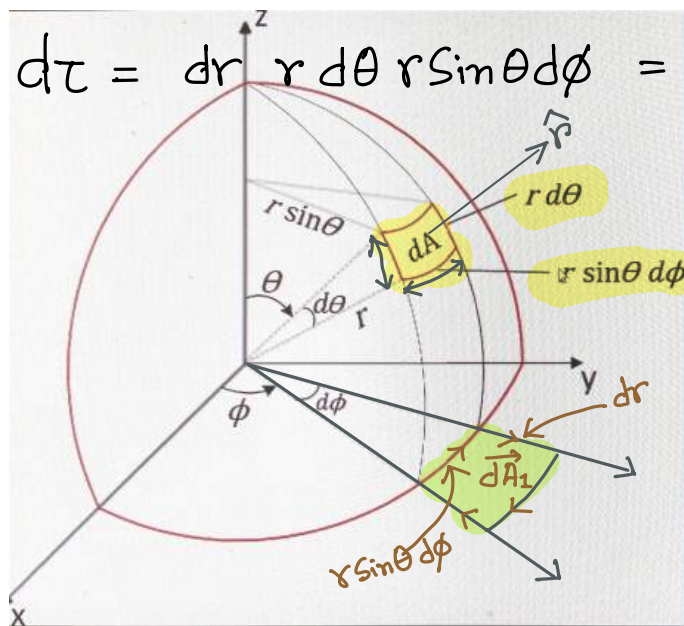 z
dτ = dr r dθ r Sinθ dϕ =
r̂
r sinθ
r dθ
dA
r sinθ dϕ
θ
dθ
r
y
ϕ
dϕ
dr
dA⃗₁
r Sinθ dϕ
x